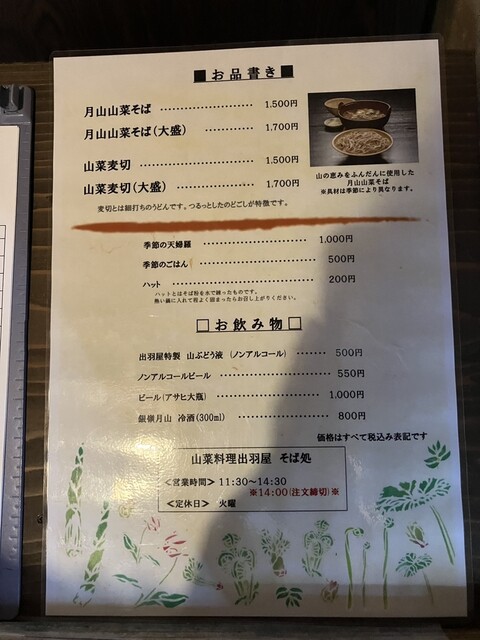 ■お品書き■
月山山菜そば ………………… 1.500円
月山山菜そば(大盛) ………… 1.700円
山菜麦切 ……………………… 1.500円
山菜麦切(大盛) ……………… 1.700円
麦切とは細打ちのうどんです。つるっとしたのどごしが特徴です。
山の恵みをふんだんに使用した
月山山菜そば
※具材は季節により異なります。
季節の天婦羅 ………………… 1,000円
季節のごはん ………………… 500円
ハット ………………………… 200円
ハットとはそば粉を水で練ったものです。
熱い鍋に入れて程よく固まったらお召し上がりください。
□お飲み物□
出羽屋特製 山ぶどう液 (ノンアルコール) ……… 500円
ノンアルコールビール ………………… 550円
ビール(アサヒ大瓶) ………………… 1.000円
銀嶺月山 冷酒(300ml) ………………… 800円
価格はすべて税込み表記です
山菜料理出羽屋 そば処
<営業時間> 11:30~14:30
※14:00(注文締切)※
<定休日> 火曜